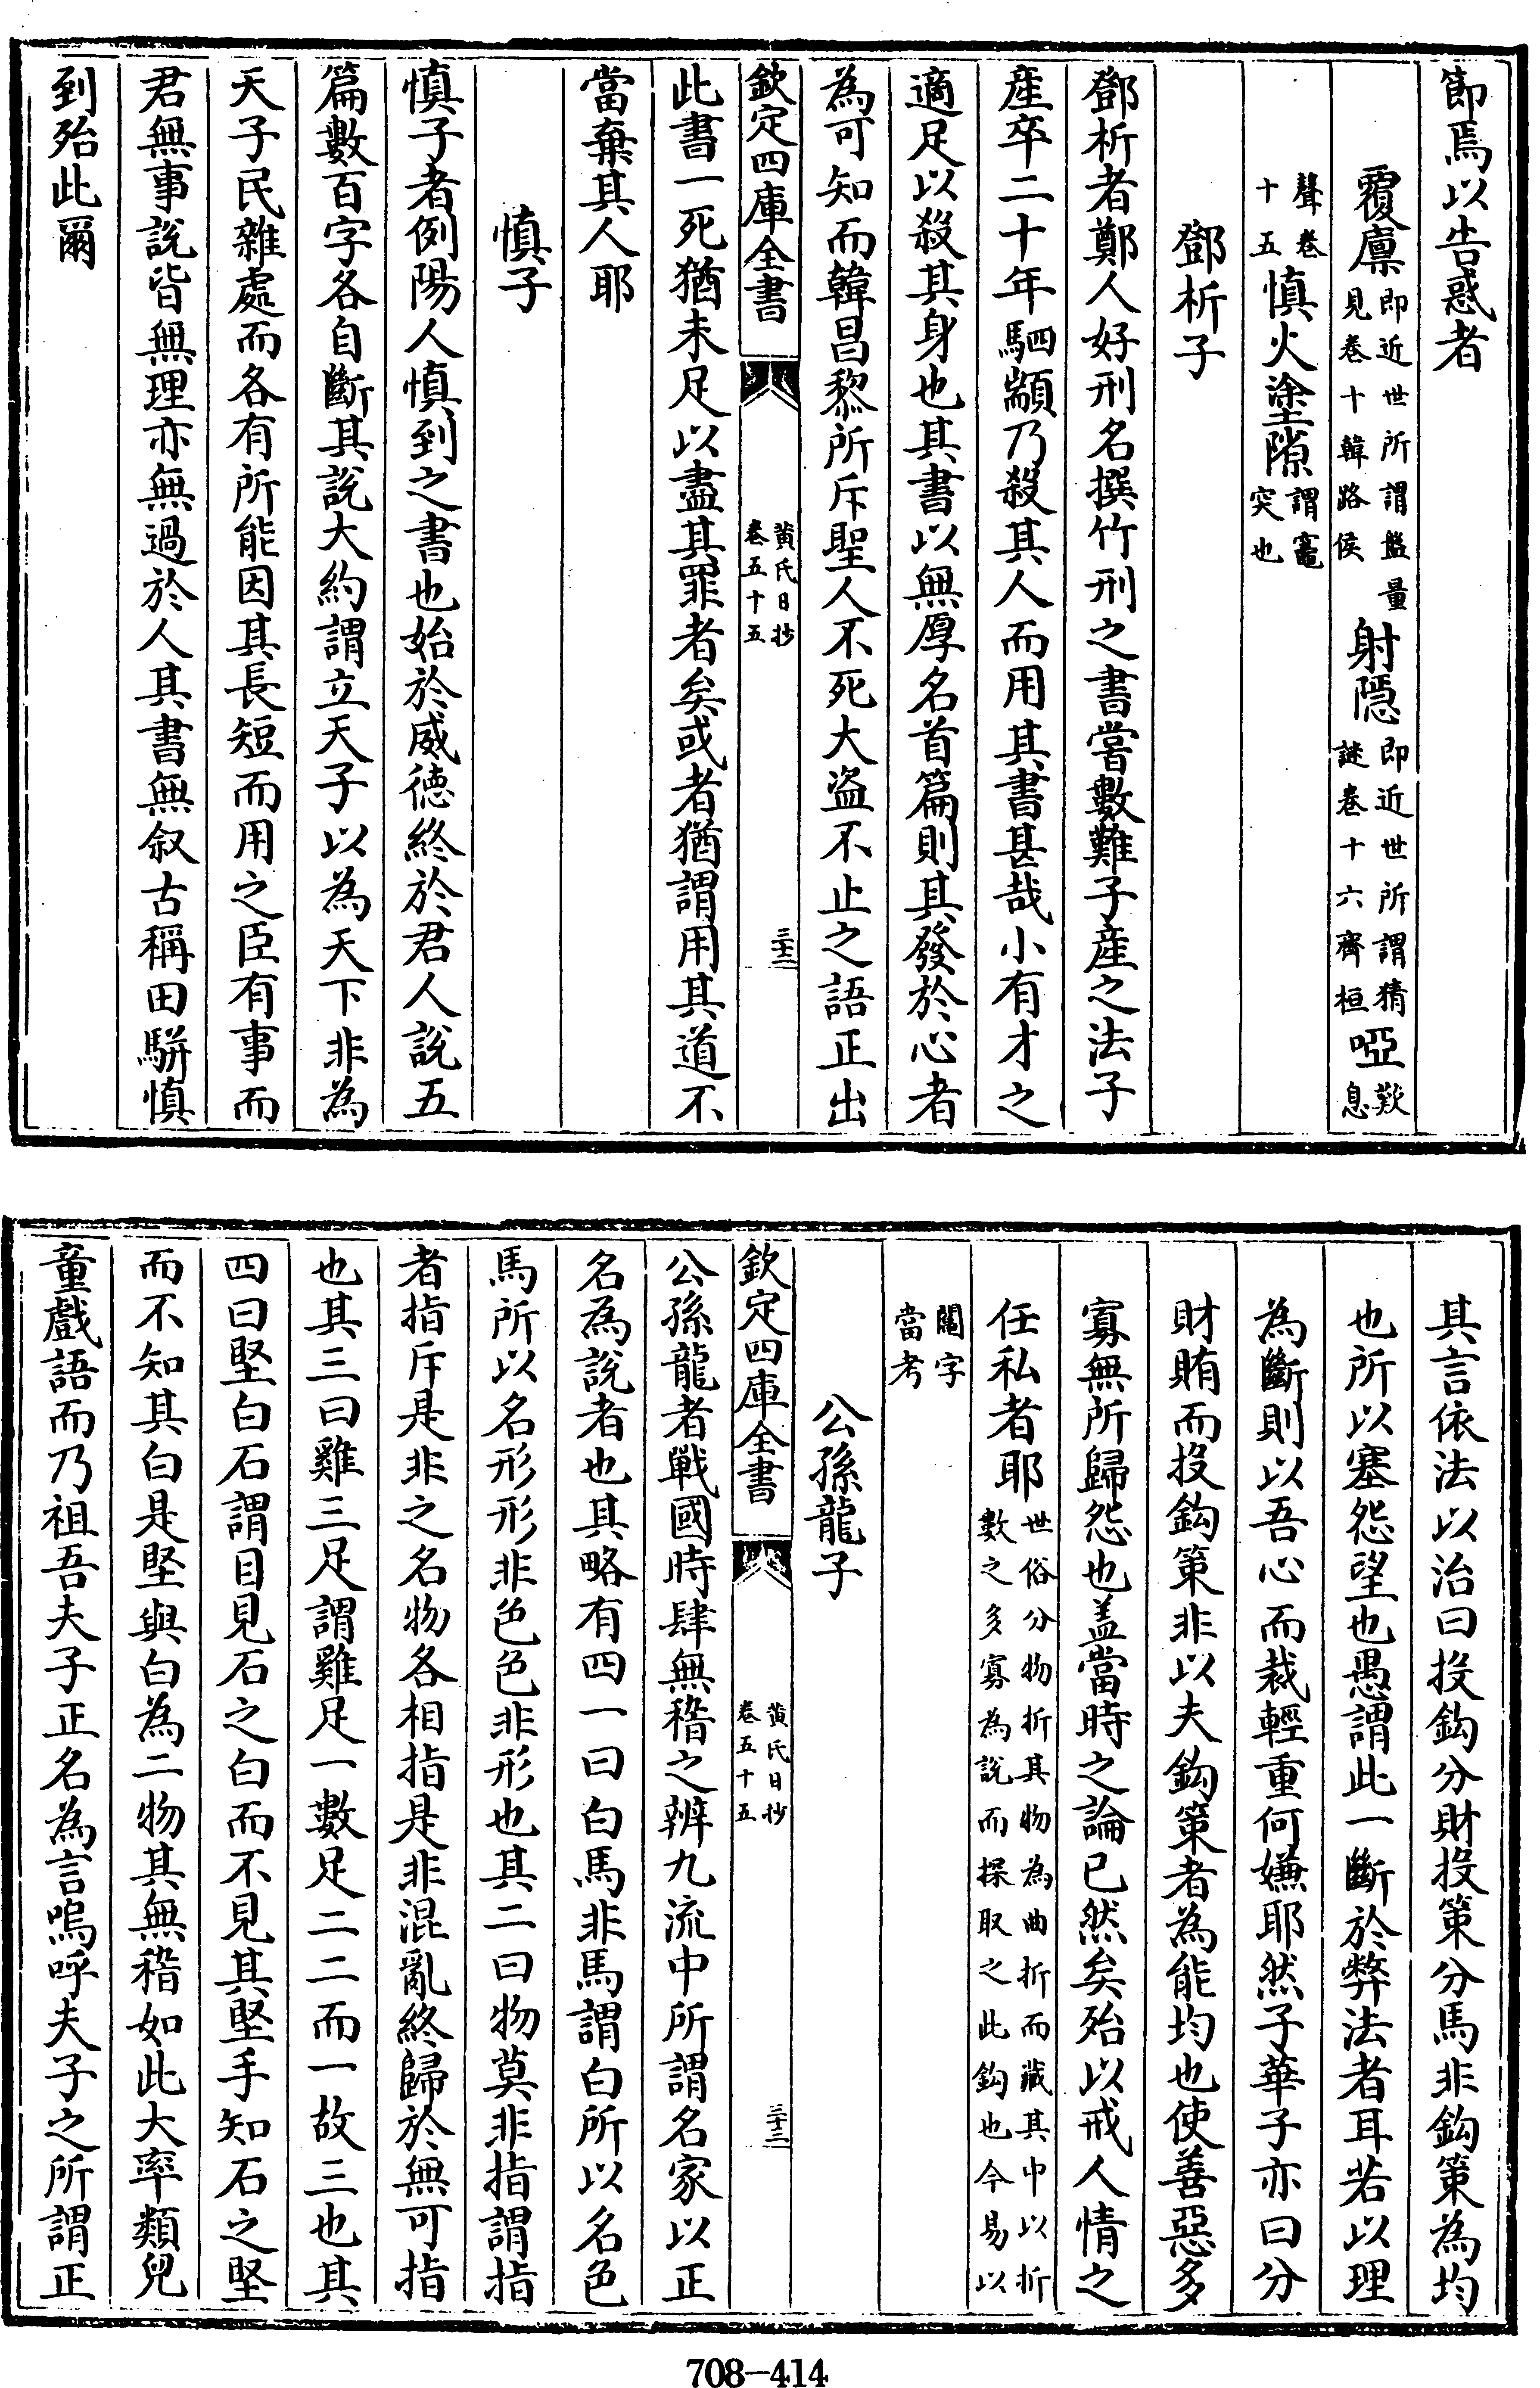 節焉以告惑者
覆廪即近世所謂盤量見卷十韓路侯射隠即近世所謂猜謎卷十六齊桓啞歎息
聲卷十五慎火塗隙謂竈突也
鄧析子
鄧析者鄭人好刑名撰竹刑之書嘗數難子産之法子
産卒二十年駟顓乃殺其人而用其書甚哉小有才之
適足以殺其身也其書以無厚名首篇則其發於心者
為可知而韓昌黎所斥聖人不死大盗不止之語正出
欽定四庫全書
黄氏日抄
卷五十五
三十二
此書一死猶未足以盡其罪者矣或者猶謂用其道不
當棄其人耶
慎子
慎子者例陽人慎到之書也始於威德終於君人說五
篇數百字各自斷其說大約謂立天子以為天下非為
天子民雜處而各有所能因其長短而用之臣有事而
君無事說皆無理亦無過於人其書無叙古稱田駢慎
到殆此爾
其言依法以治曰投鈎分財投策分馬非鈎策為均
也所以塞怨望也愚謂此一斷於弊法者耳若以理
為斷則以吾心而裁輕重何嫌耶然子華子亦曰分
財賄而投鈎策非以夫鈎策者為能均也使善惡多
寡無所歸怨也盖當時之論已然矣殆以戒人情之
任私者耶世俗分物折其物為曲折而藏其中以折數之多寡為說而探取之此鈎也今易以
鬮字當考
公孫龍子
欽定四庫全書
黄氏日抄
卷五十五
三十三
公孫龍者戰國時肆無稽之辨九流中所謂名家以正
名為說者也其略有四一曰白馬非馬謂白所以名色
馬所以名形形非色色非形也其二曰物莫非指謂指
者指斥是非之名物各相指是非混亂終歸於無可指
也其三曰雞三足謂雞足一數足二二而一故三也其
四曰堅白石謂目見石之白而不見其堅手知石之堅
而不知其白是堅與白為二物其無稽如此大率類兒
童戲語而乃祖吾夫子正名為言嗚呼夫子之所謂正
708-414